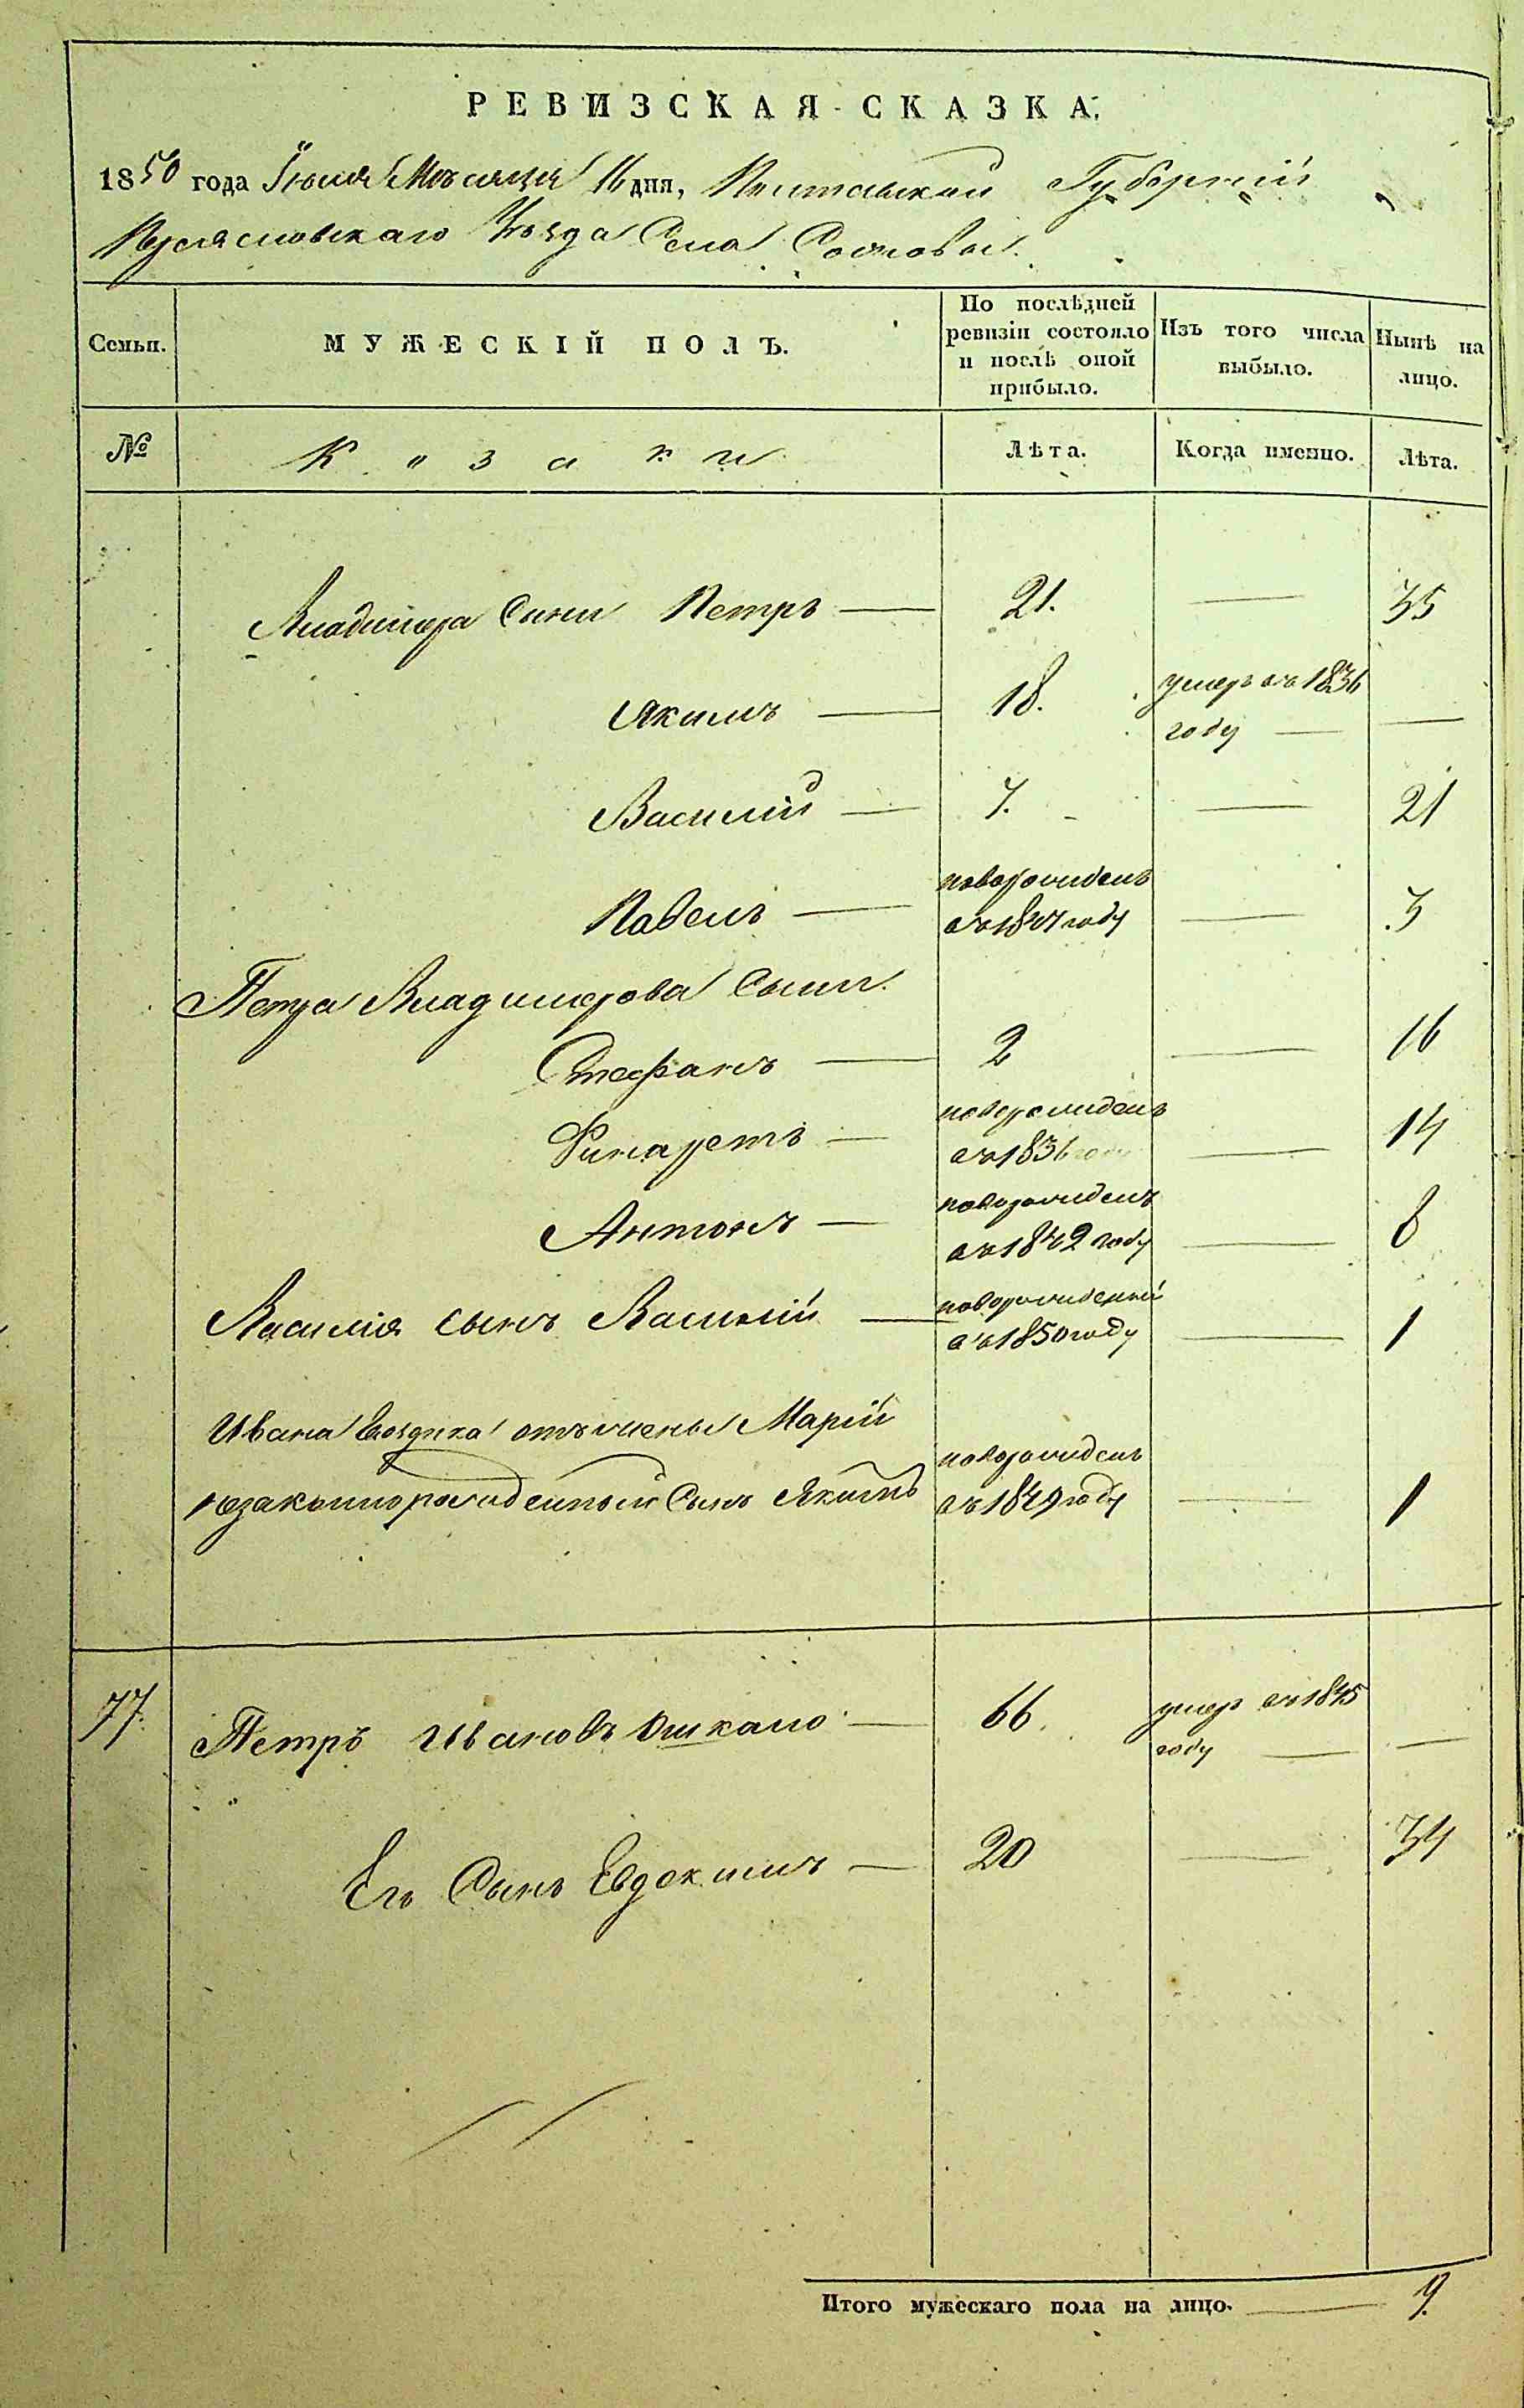 РЕВИЗСКАЯ СКАЗКА.
1850 года Іюня Мѣсяца 16 дня, Полтавской Губерніи,
Переясловскаго Уѣзда Села Сосновы.
Семьи.
МУЖЕСКІЙ ПОЛЪ.
По послѣдней ревизіи состояло и послѣ оной прибыло.
Изъ того числа выбыло.
Нынѣ на лицо.
№
Козаки
Лѣта.
Когда именно.
Лѣта.
Владимера Сыни Петръ — 21. — 35
Якимъ — 18. умеръ въ 1836
году — —
Василій — 7. — 21
Павелъ — новорожденъ
въ 1847 году — 3
Петра Владимерова Сыни
Стефанъ — 2 — 16
Филаретъ — новорожденъ
въ 1836 году — 14
Антонъ — новорожденъ
въ 1842 году — 8
Василія сынъ Василій — новорожденный
въ 1850 году — 1
Ивана отъ жены Маріи
незаконнорожденный Сынъ Якимъ новорожденъ
въ 1849 году — 1
77. Петръ Ивановъ Ошкало — 66. умеръ въ 1845
году — —
Его Сынъ Евдокимъ — 20 — 34
Итого мужескаго пола на лицо. — 9.